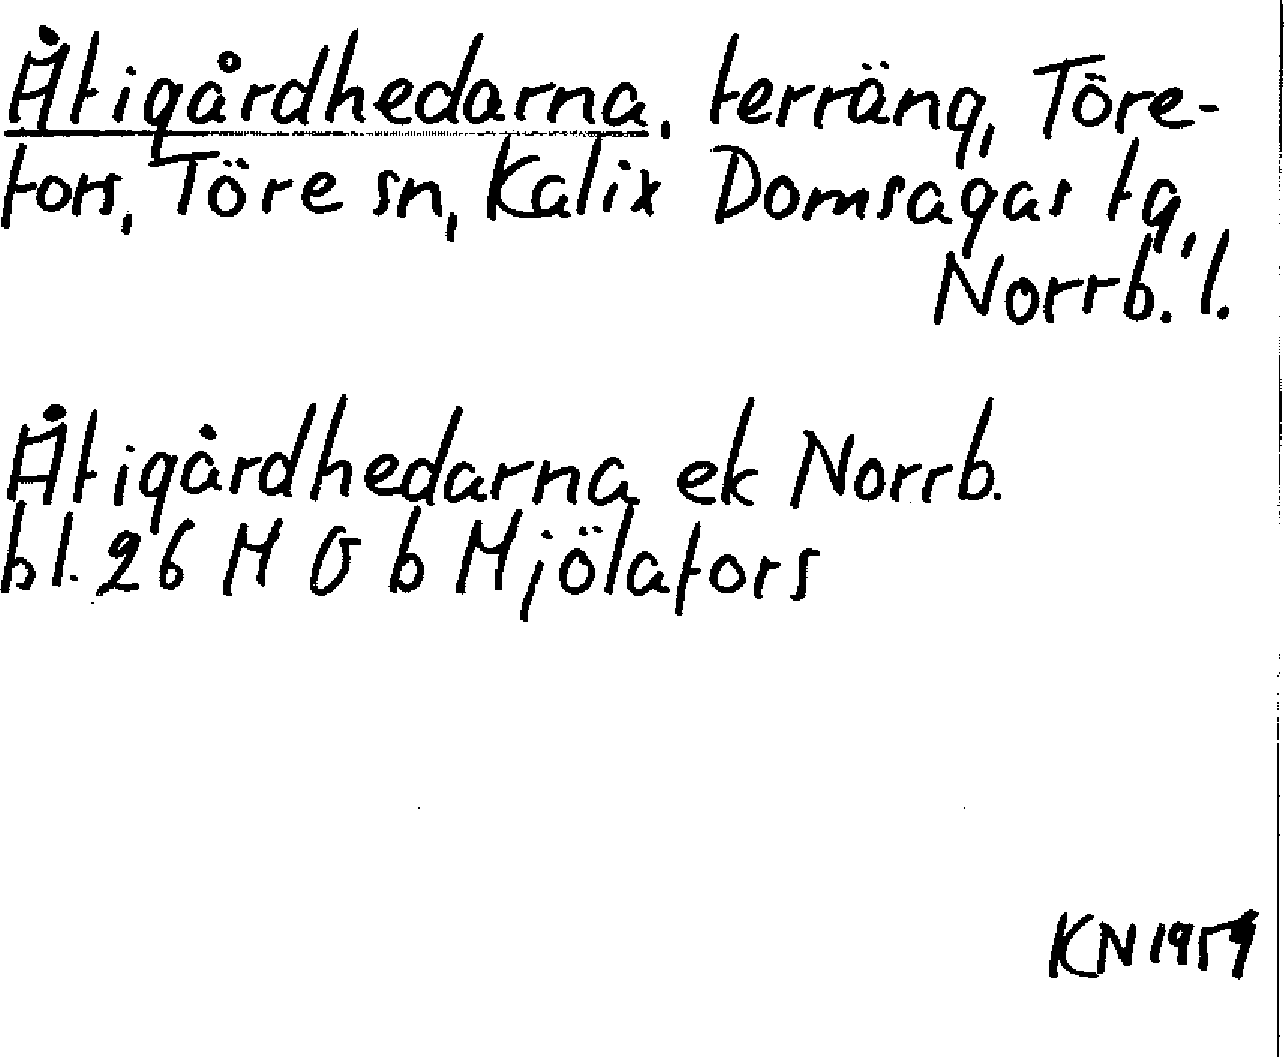 Åtigårdhedarna, terräng, Töre-
fors, Töre sn, Kalix Domsagas tg,
Norrb. l.
Åtigårdhedarna ek Norrb.
bl. 26 M O b Mjölafors
KN 1959